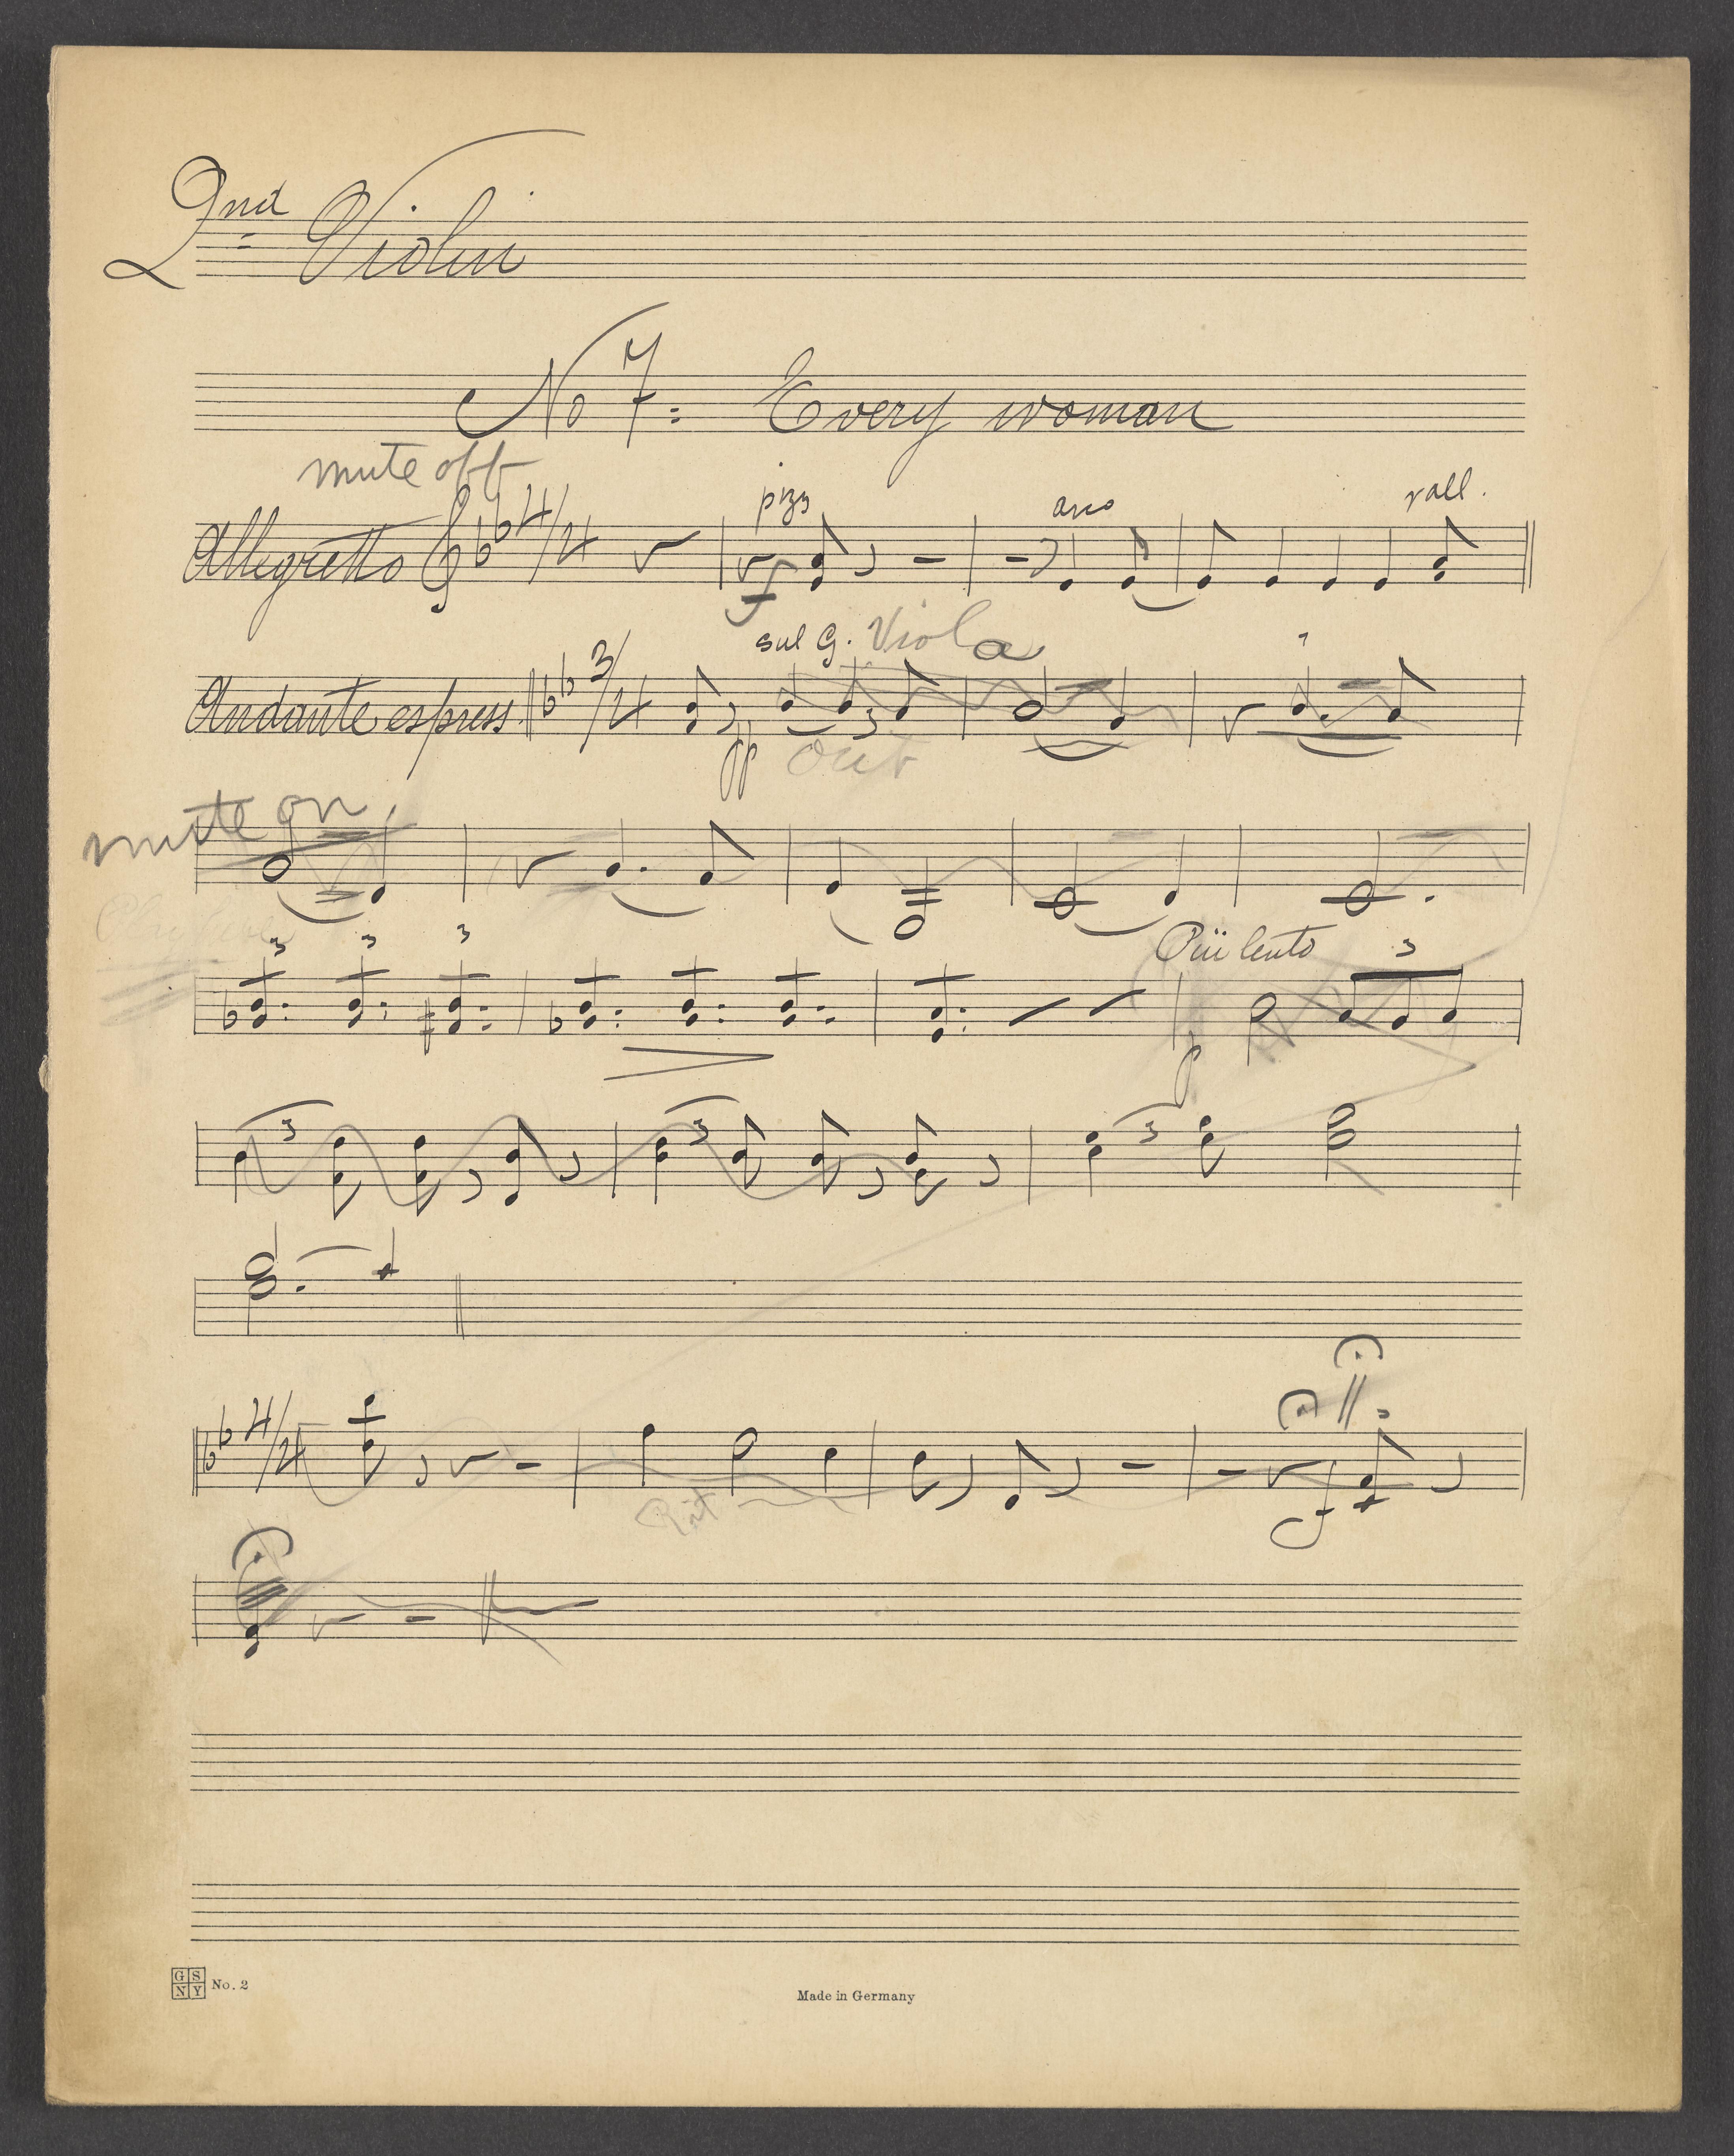 2nd Violin
No 7: Every woman
mute off
pizz arco rall.
Allegretto 4/4
f
sul G. Viola
Andante espress. 3/4 3
pp out
mute on
3 3 3 Più lento 3
p
3 3 3
4/4
Rit
f
GS
NY No. 2
Made in Germany